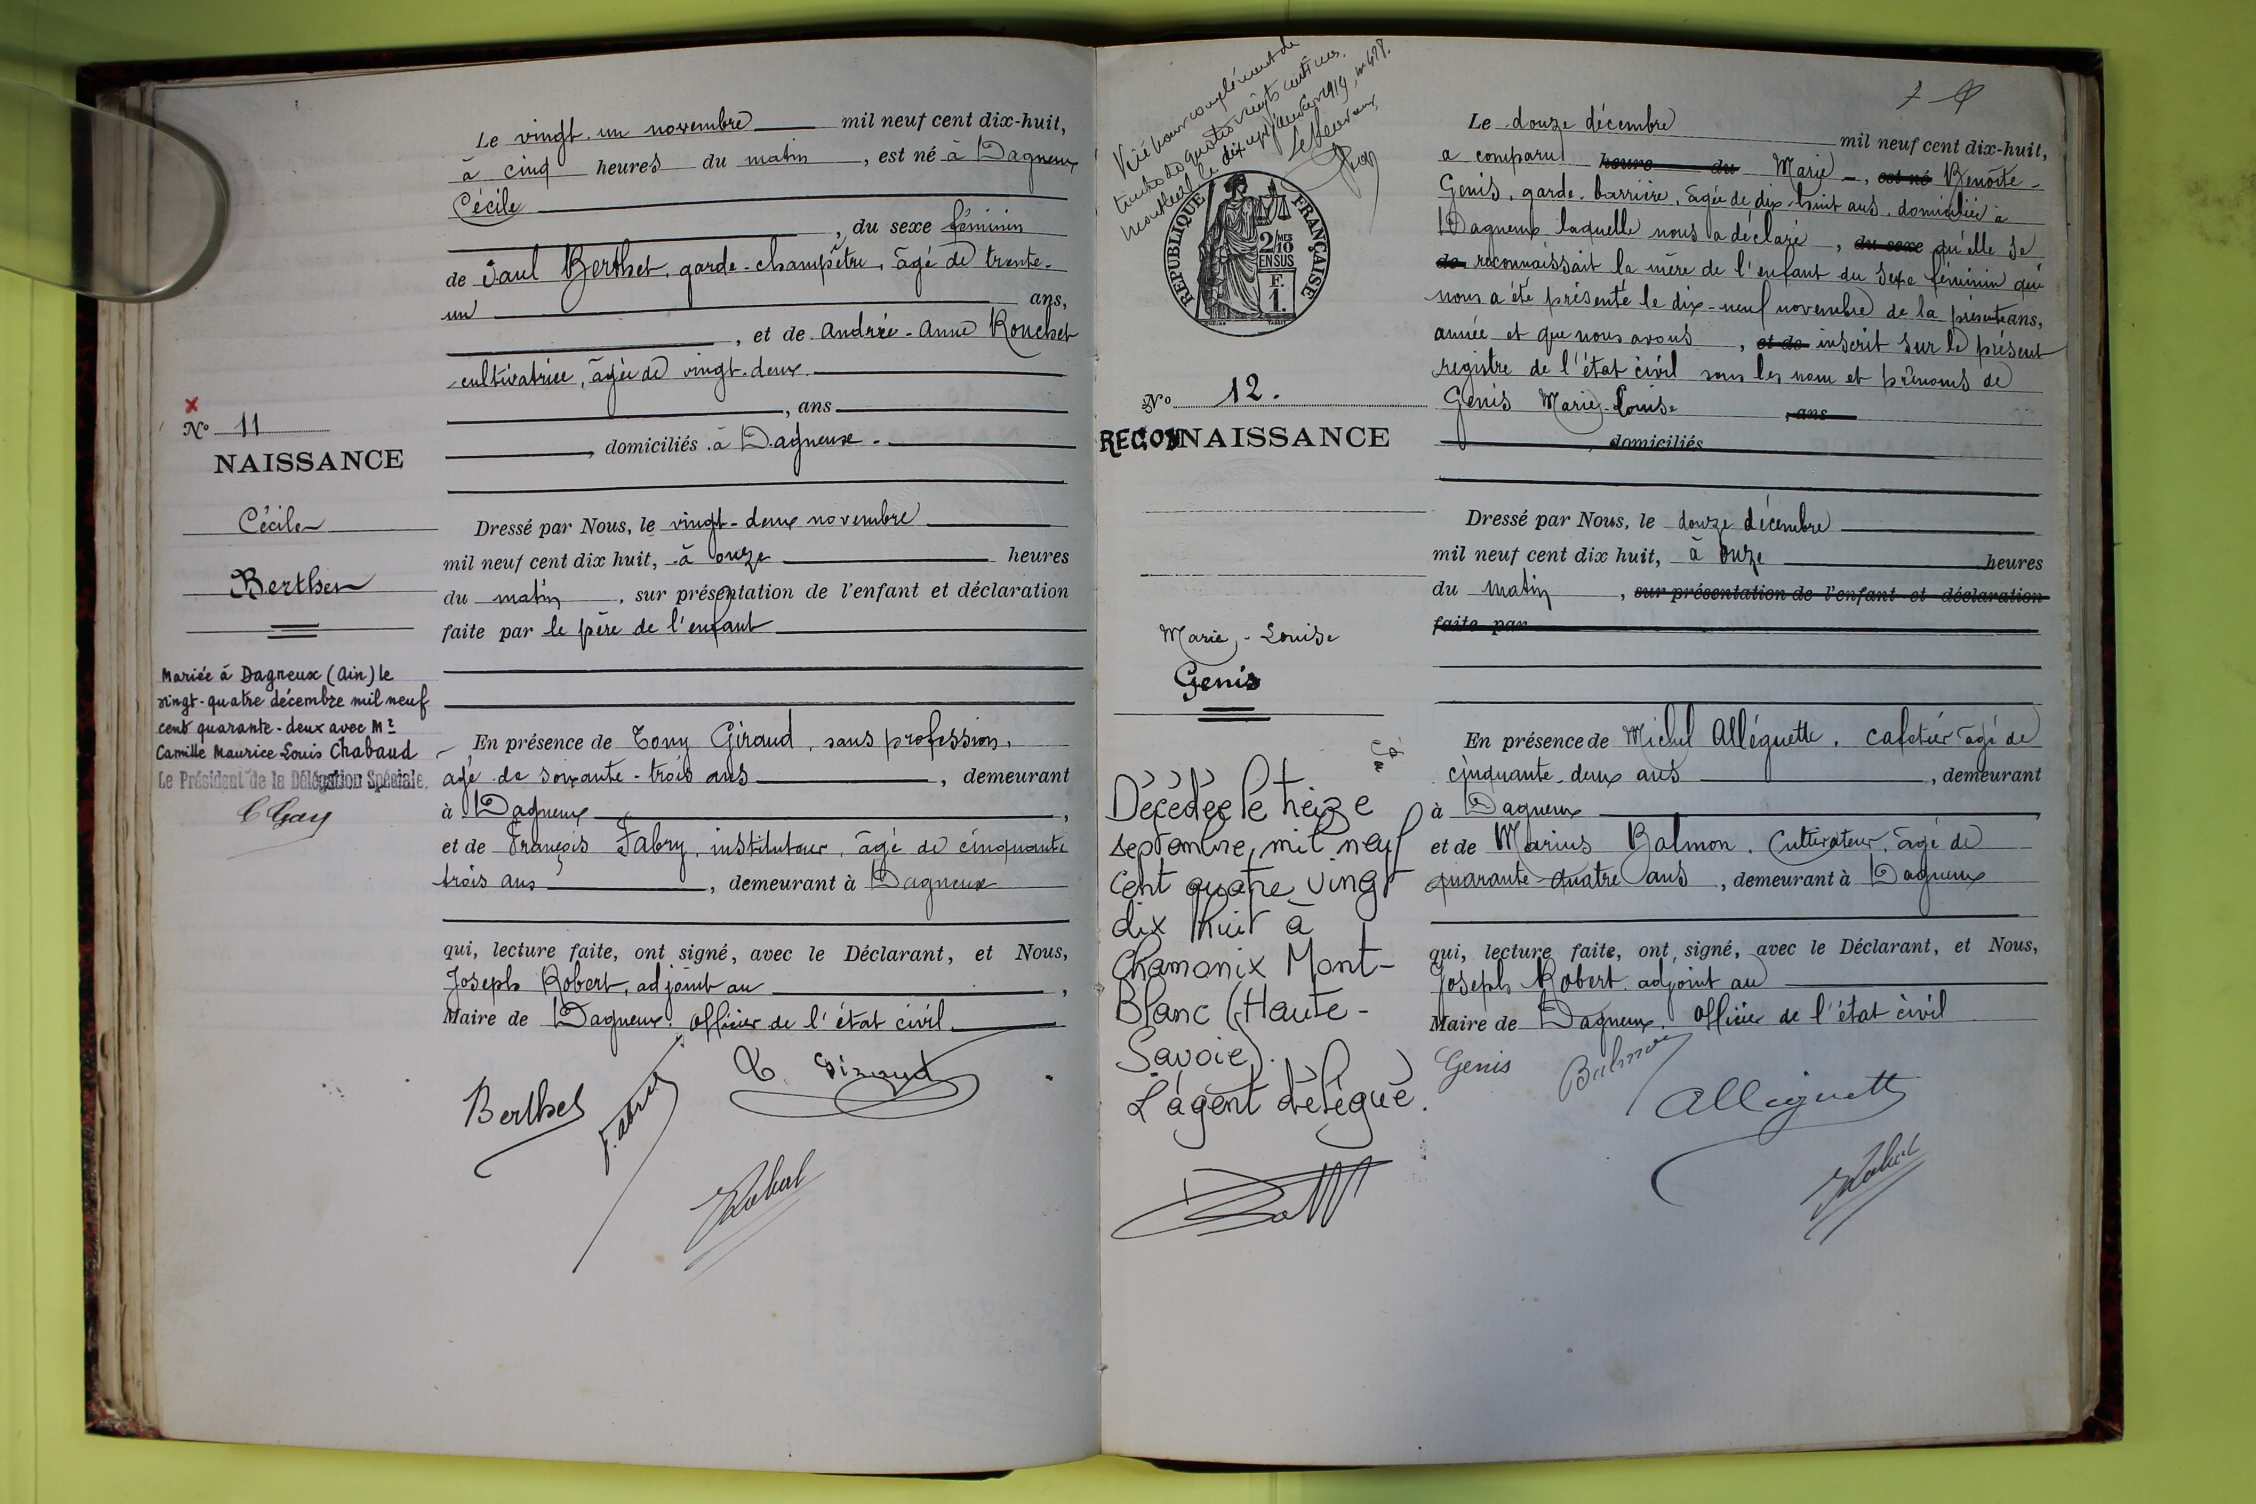 Le vingt-un novembre mil neuf cent dix-huit,
à cinq heures du matin, est né à Dagneux
Cécile
, du sexe féminin
de Paul Berthet, garde-champêtre, âgé de trente-
un ans,
, et de Andrée-Anne Rouchet
cultivatrice, âgée de vingt-deux
, ans
, domiciliés à Dagneux.
X
N° 11
NAISSANCE
Cécile
Berthet
Mariée à Dagneux (Ain) le
vingt-quatre décembre mil neuf
cent quarante-deux avec Mr
Camille Maurice Louis Chabaud
Le Président de la Délégation Spéciale,
C Gay
Dressé par Nous, le vingt-deux novembre
mil neuf cent dix huit, à onze heures
du matin, sur présentation de l'enfant et déclaration
faite par le père de l'enfant
En présence de Tony Giraud, sans profession,
âgé de soixante-trois ans, demeurant
à Dagneux,
et de François Fabry, instituteur, âgé de cinquante
trois ans, demeurant à Dagneux
qui, lecture faite, ont signé, avec le Déclarant, et Nous,
Joseph Robert, adjoint au,
Maire de Dagneux. Officier de l'état civil
Berthet
F. Fabry
T. Giraud
J Robert
Visé pour complément de
timbre à quatre vingts centimes.
Montluel le dix sept janvier 1919, n° 428.
Le Receveur,
RÉPUBLIQUE FRANÇAISE
2/10 MES
EN SUS
F.
1.
N° 12.
RECONNAISSANCE
Marie-Louise
Genis
Décédée le treize
septembre mil neuf
cent quatre vingt
dix huit à
Chamonix Mont-
Blanc (Haute-
Savoie).
L'agent délégué.
Le douze décembre mil neuf cent dix-huit,
a comparu heure du Marie -, est né Benoîte -
Genis, garde-barrière, âgée de dix-huit ans, domiciliée à
Dagneux laquelle nous a déclaré, du sexe qu'elle se
de reconnaissait la mère de l'enfant du sexe féminin qui
nous a été présenté le dix-neuf novembre de la présente ans,
année et que nous avons, et de inscrit sur le présent
registre de l'état civil sous les nom et prénoms de
Genis Marie-Louise, ans
, domiciliés
Dressé par Nous, le douze décembre
mil neuf cent dix huit, à onze heures
du matin, sur présentation de l'enfant et déclaration
faite par
En présence de Michel Alléguette, cafetier âgé de
cinquante-deux ans, demeurant
à Dagneux,
et de Marius Balmon, Cultivateur, âgé de
quarante-quatre ans, demeurant à Dagneux
qui, lecture faite, ont signé, avec le Déclarant, et Nous,
Joseph Robert, adjoint au
Maire de Dagneux. Officier de l'état civil
Genis
Balmon
Alléguette
J Robert